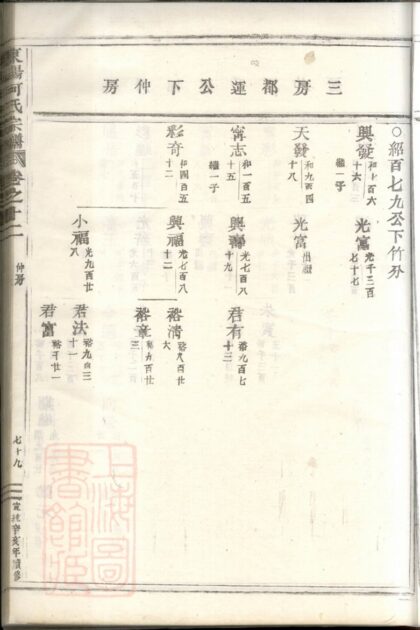 三房都運公下仲房
○紹百七九公下竹分
興發 和九百六十六 繼一子
光富 光千三百七十七
天發 和九百四十八
光富 出繼
甯志 和一百五十五 繼一子
興壽 光七百八十九
君有 裕九百七十三
彩奇 和四百五
興福 光七百八十二
裕清 裕八百廿六
裕章 裕九百廿三
小福 光九百廿八
君法 裕九百三十一
君富 裕千廿一
東陽何氏宗譜
卷之十二
仲房
七十九
宣統辛亥年續修
上海圖書館藏